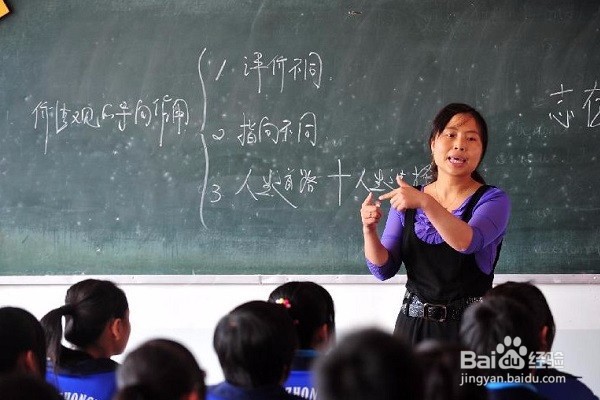 1 评价不同
价值观的导向作用
2 指向不同
3 人生道路 十人生选择
志在
ZHONG
Baidu 经验
jingyan.baidu.com